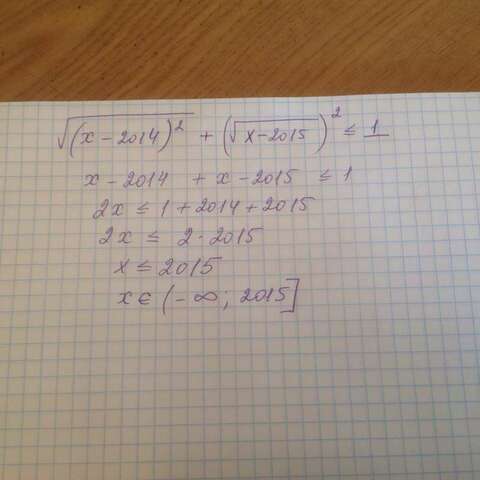 √(x-2014)² + (√x-2015)² ≤ 1
x - 2014 + x - 2015 ≤ 1
2x ≤ 1 + 2014 + 2015
2x ≤ 2·2015
x ≤ 2015
x ∈ (-∞; 2015]